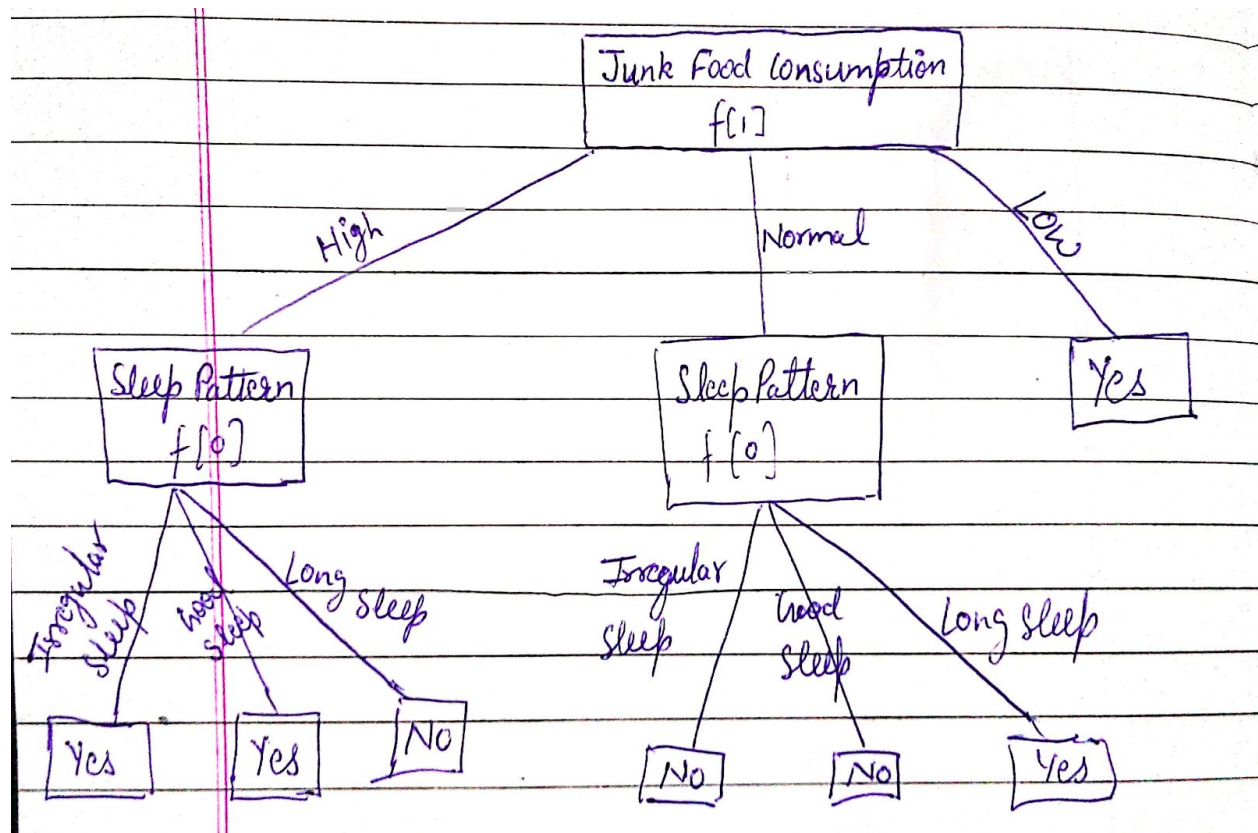 Junk Food Consumption
f[1]
High
Normal
Low
Sleep Pattern
f[0]
Sleep Pattern
f[0]
Yes
Irregular
Sleep
Good
Sleep
Long
Sleep
Irregular
Sleep
Good
Sleep
Long Sleep
Yes
Yes
No
No
No
Yes